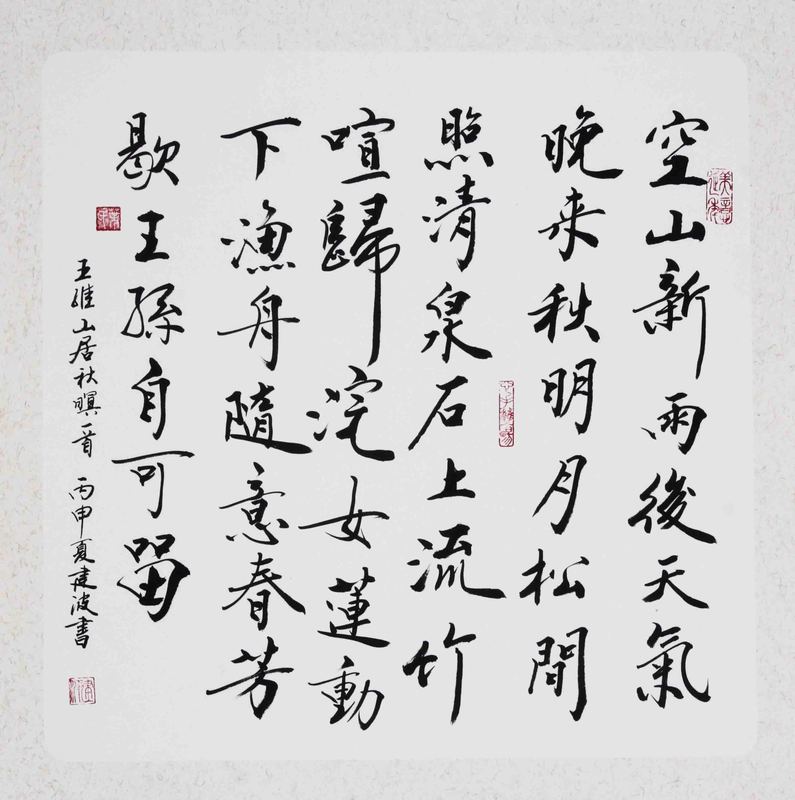 空山新雨後天氣
晚来秋明月松間
照清泉石上流竹
喧歸浣女蓮動
下漁舟隨意春芳
歇王孫自可留
王維山居秋暝一首 丙申夏建波書